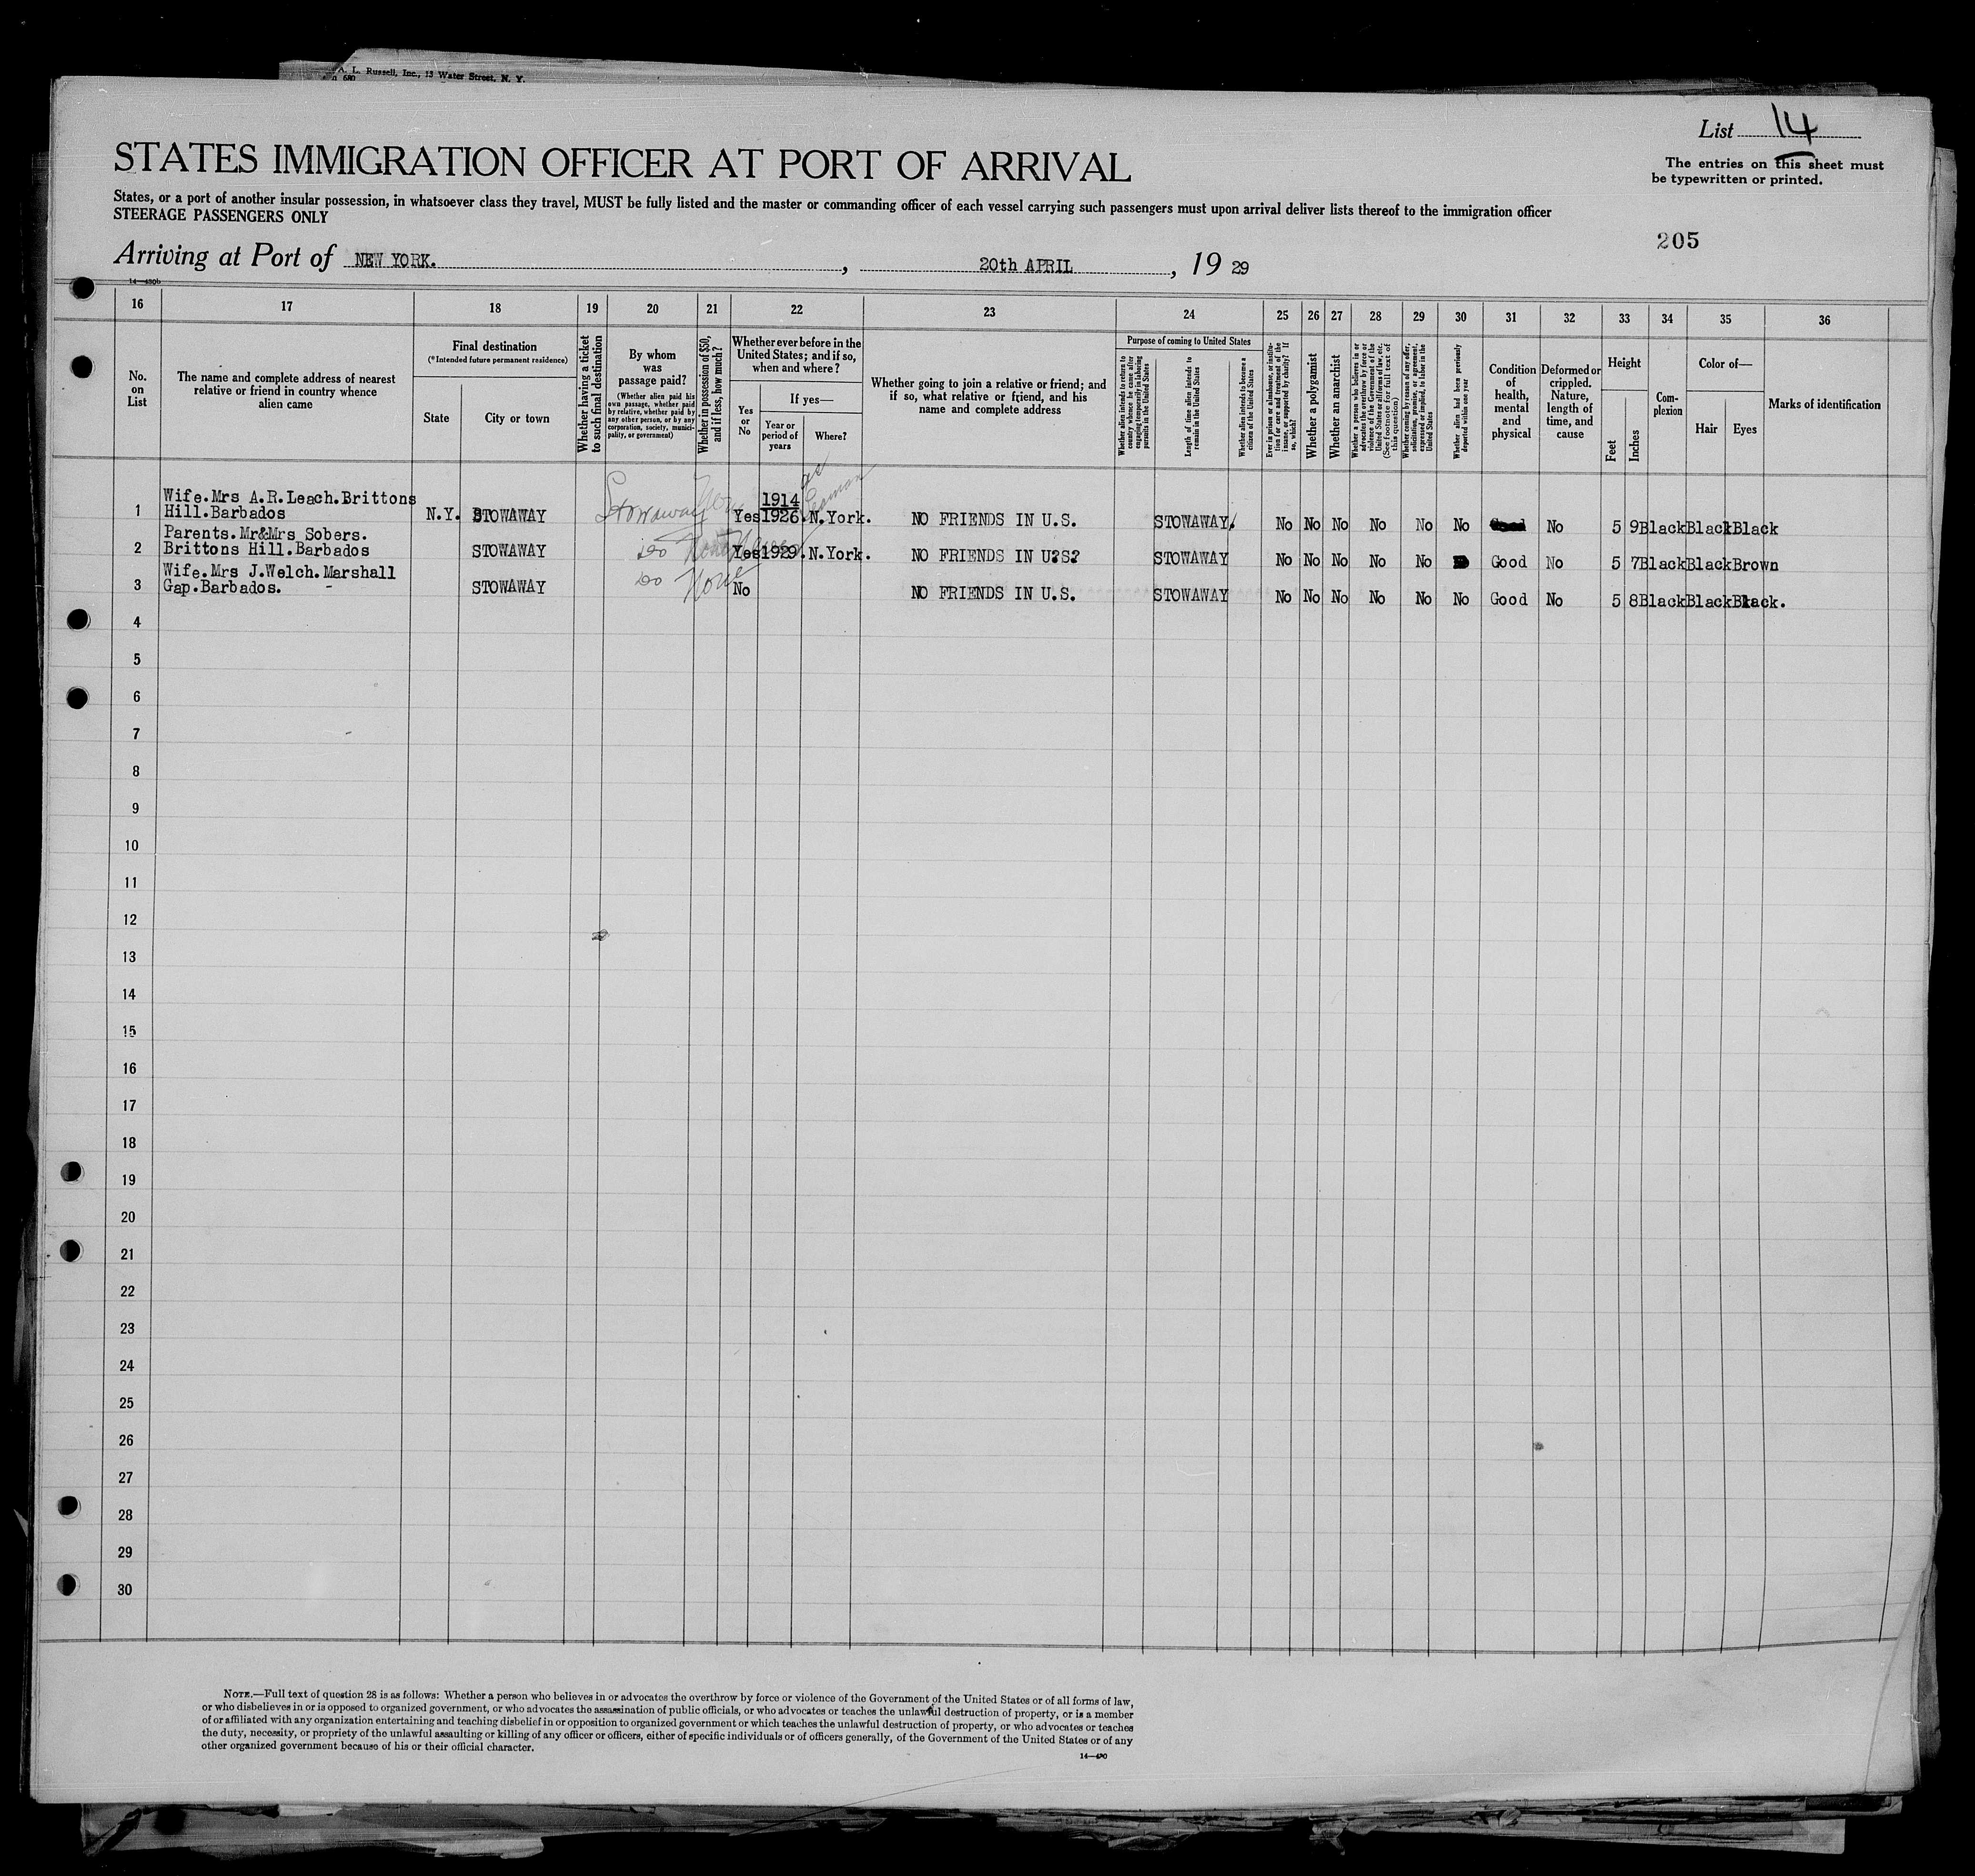 A. L. Russell, Inc., 15 Water Street, N. Y.
680
List 14
The entries on this sheet must
be typewritten or printed.
STATES IMMIGRATION OFFICER AT PORT OF ARRIVAL
States, or a port of another insular possession, in whatsoever class they travel, MUST be fully listed and the master or commanding officer of each vessel carrying such passengers must upon arrival deliver lists thereof to the immigration officer
STEERAGE PASSENGERS ONLY
205
Arriving at Port of NEW YORK. , 20th APRIL , 19 29
14—480b
16 17 18 19 20 21 22 23 24 25 26 27 28 29 30 31 32 33 34 35 36
No.
on
List
The name and complete address of nearest
relative or friend in country whence
alien came
Final destination
(*Intended future permanent residence)
State
City or town
Whether having a ticket
to such final destination
By whom
was
passage paid?
(Whether alien paid his
own passage, whether paid
by relative, whether paid by
any other person, or by any
corporation, society, munici-
pality, or government)
Whether in possession of $50,
and if less, how much?
Whether ever before in the
United States; and if so,
when and where?
Yes
or
No
If yes—
Year or
period of
years
Where?
Whether going to join a relative or friend; and
if so, what relative or friend, and his
name and complete address
Purpose of coming to United States
Whether alien intends to return to
country whence he came after
engaging temporarily in laboring
pursuits in the United States
Length of time alien intends to
remain in the United States
Whether alien intends to become a
citizen of the United States
Ever in prison or almshouse, or institu-
tion for care and treatment of the
insane, or supported by charity? If
so, which?
Whether a polygamist
Whether an anarchist
Whether a person who believes in or
advocates the overthrow by force or
violence of the Government of the
United States or all forms of law, etc.
(See footnote for full text of
this question)
Whether coming by reason of any offer,
solicitation, promise, or agreement,
expressed or implied, to labor in the
United States
Whether alien had been previously
deported within one year
Condition
of
health,
mental
and
physical
Deformed or
crippled.
Nature,
length of
time, and
cause
Height
Feet
Inches
Com-
plexion
Color of—
Hair
Eyes
Marks of identification
as
Seaman
Wife.Mrs A.R.Leach.Brittons
1914
1 Hill.Barbados N.Y. STOWAWAY Stowaway Yes 1926. N.York. NO FRIENDS IN U.S. STOWAWAY. No No No No No No No 5 9 Black Black Black
Parents.Mr&Mrs Sobers.
2 Brittons Hill.Barbados STOWAWAY Do None Yes 1929. N.York. NO FRIENDS IN U?S? STOWAWAY No No No No No Good No 5 7 Black Black Brown
Wife.Mrs J.Welch.Marshall
3 Gap.Barbados. STOWAWAY Do None No NO FRIENDS IN U.S. STOWAWAY No No No No No No Good No 5 8 Black Black Black.
4
5
6
7
8
9
10
11
12
13
14
15
16
17
18
19
20
21
22
23
24
25
26
27
28
29
30
NOTE.—Full text of question 28 is as follows: Whether a person who believes in or advocates the overthrow by force or violence of the Government of the United States or of all forms of law,
or who disbelieves in or is opposed to organized government, or who advocates the assassination of public officials, or who advocates or teaches the unlawful destruction of property, or is a member
of or affiliated with any organization entertaining and teaching disbelief in or opposition to organized government or which teaches the unlawful destruction of property, or who advocates or teaches
the duty, necessity, or propriety of the unlawful assaulting or killing of any officer or officers, either of specific individuals or of officers generally, of the Government of the United States or of any
other organized government because of his or their official character.
14—490